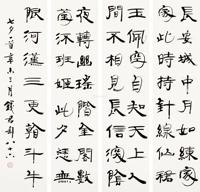 長安城中月如練家
家此持針線仙裙
玉佩空自知天上人
間不相見長信深陰
夜轉幽瑤階金閣數
螢流班姬此夕愁無
限河漢三更看斗牛
七夕一首辛未月錢君匋八十六